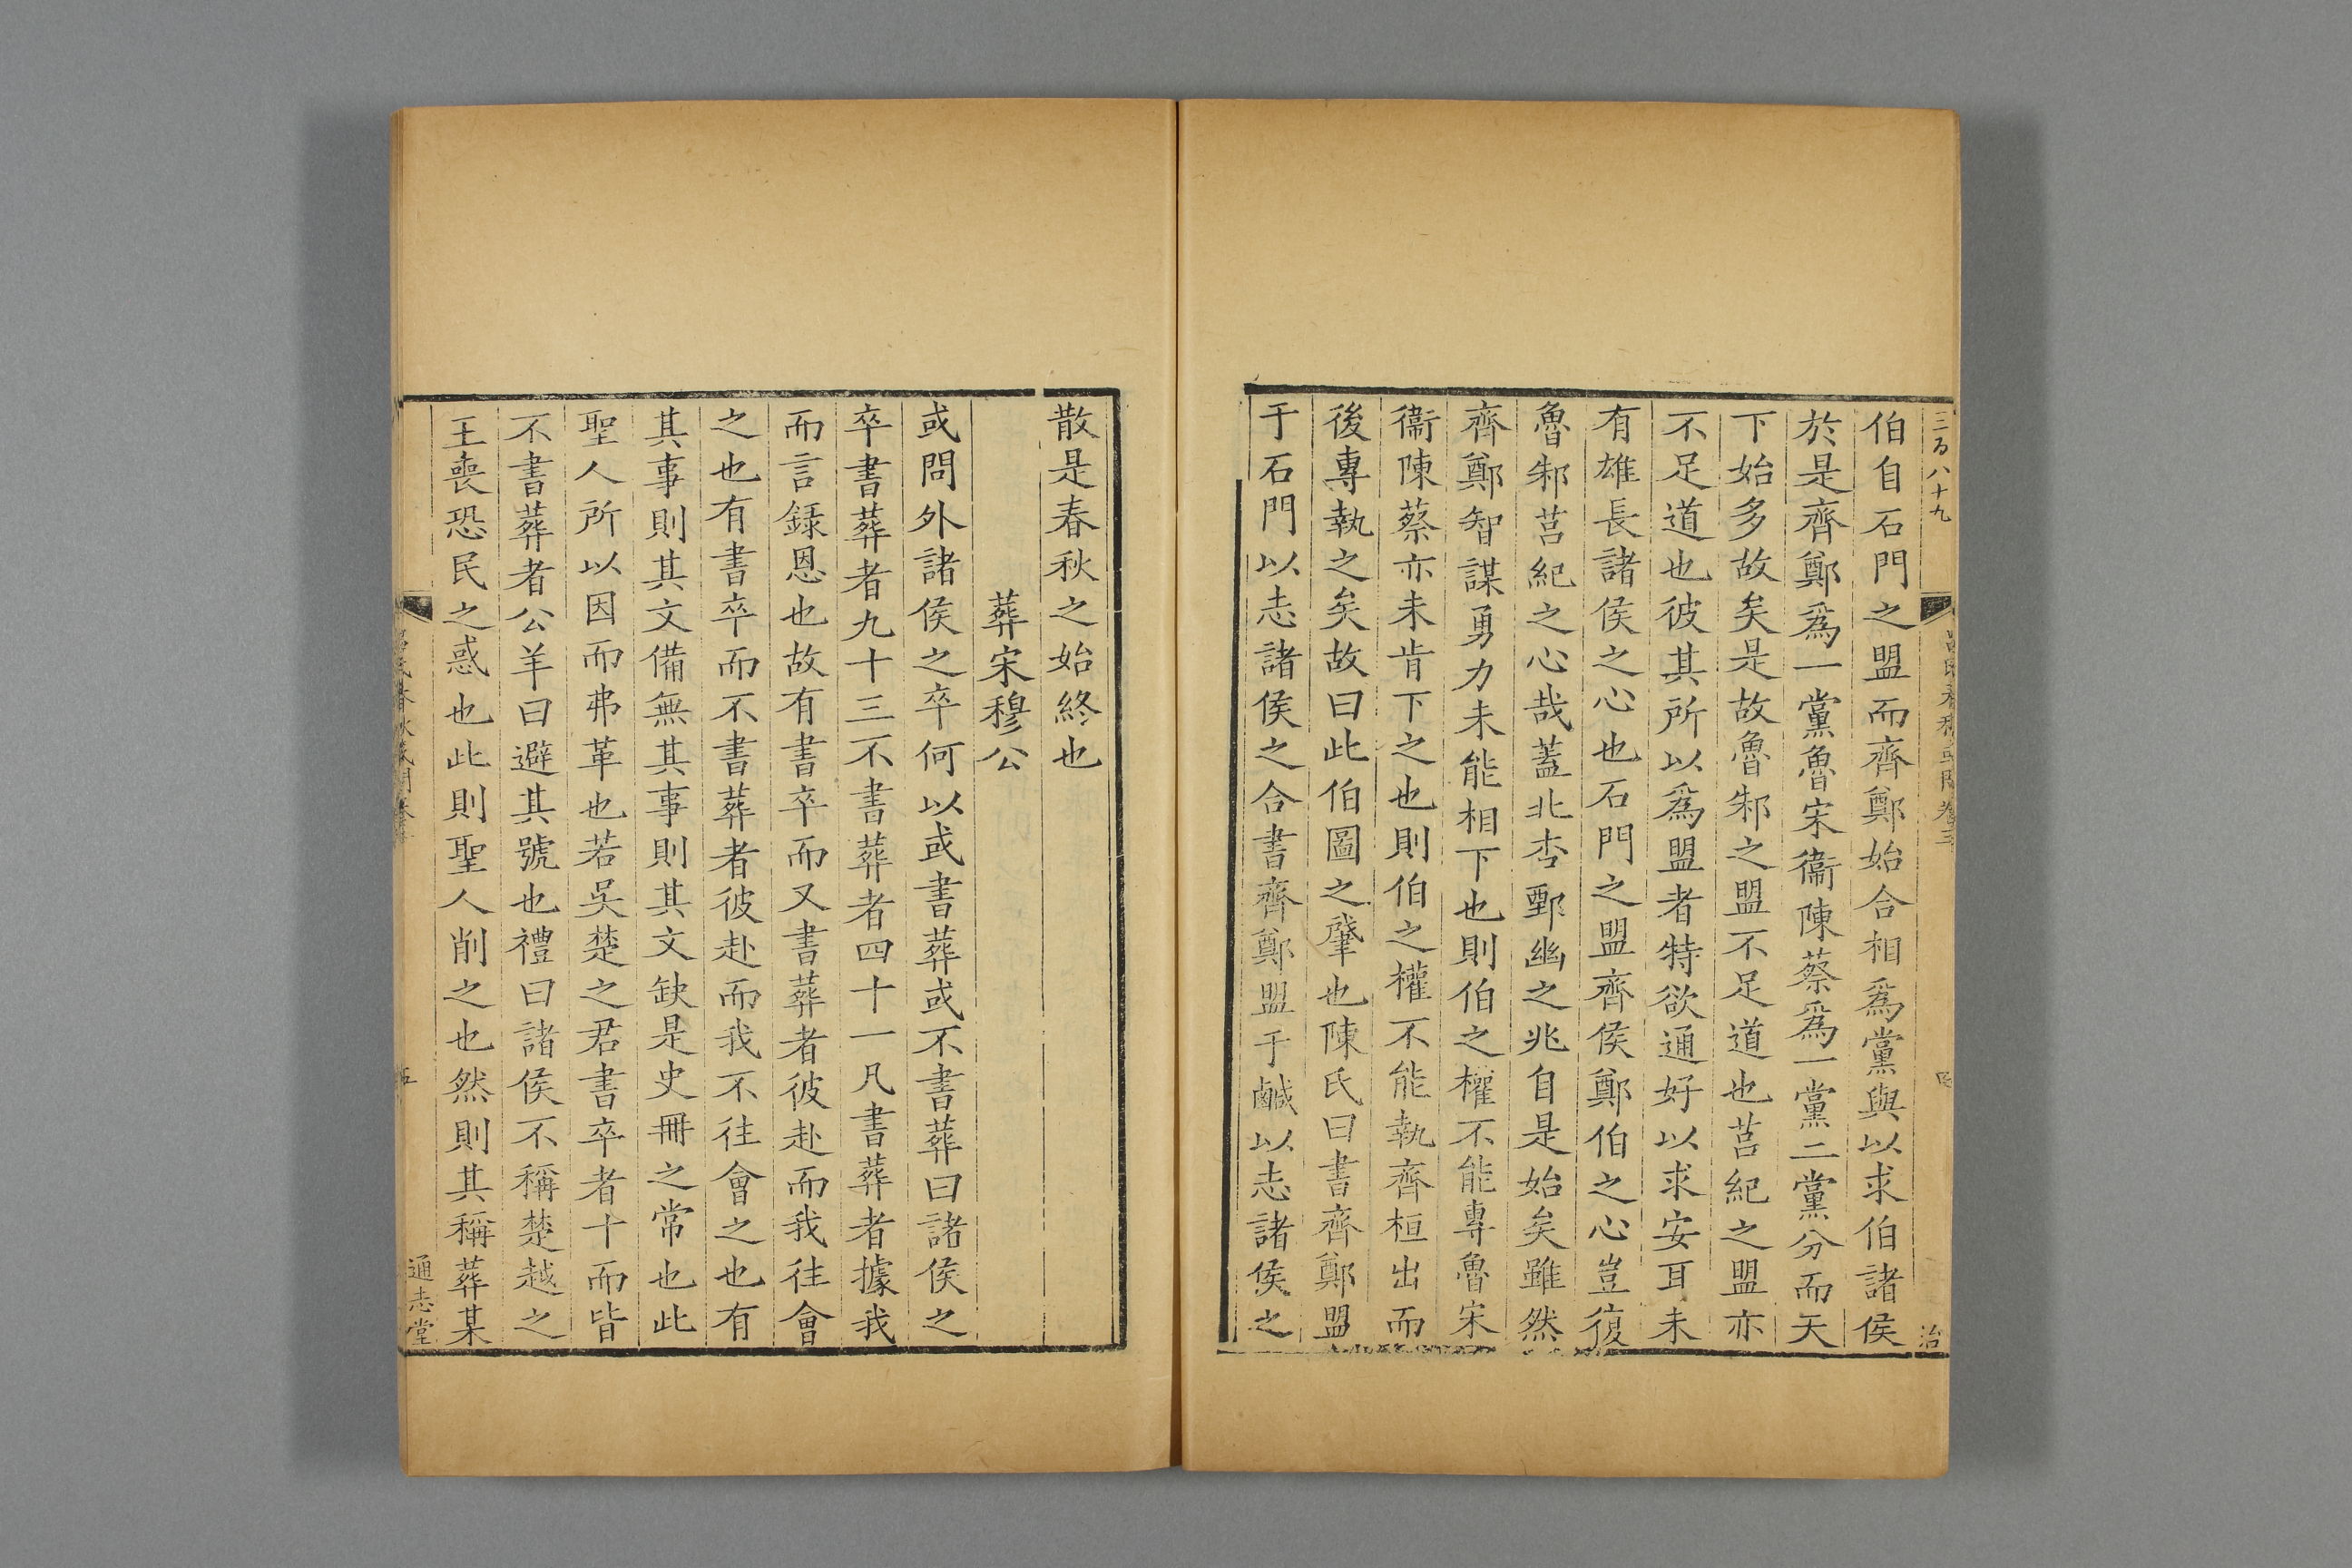 三百八十九
呂氏春秋或問卷三
四
治
伯自石門之盟而齊鄭始合相爲黨與以求伯諸侯
於是齊鄭爲一黨魯宋衞陳蔡爲一黨二黨分而天
下始多故矣是故魯邾之盟不足道也莒紀之盟亦
不足道也彼其所以爲盟者特欲通好以求安耳未
有雄長諸侯之心也石門之盟齊侯鄭伯之心豈復
魯邾莒紀之心哉蓋北杏鄄幽之兆自是始矣雖然
齊鄭智謀勇力未能相下也則伯之權不能專魯宋
衞陳蔡亦未肯下之也則伯之權不能執齊桓出而
後專執之矣故曰此伯圖之肇也陳氏曰書齊鄭盟
于石門以志諸侯之合書齊鄭盟于鹹以志諸侯之
散是春秋之始終也
葬宋穆公
或問外諸侯之卒何以或書葬或不書葬曰諸侯之
卒書葬者九十三不書葬者四十一凡書葬者據我
而言錄恩也故有書卒而又書葬者彼赴而我往會
之也有書卒而不書葬者彼赴而我不往會之也有
其事則其文備無其事則其文缺是史冊之常也此
聖人所以因而弗革也若吳楚之君書卒者十而皆
不書葬者公羊曰避其號也禮曰諸侯不稱楚越之
王喪恐民之惑也此則聖人削之也然則其稱葬某
呂氏春秋或問卷三
五
通志堂